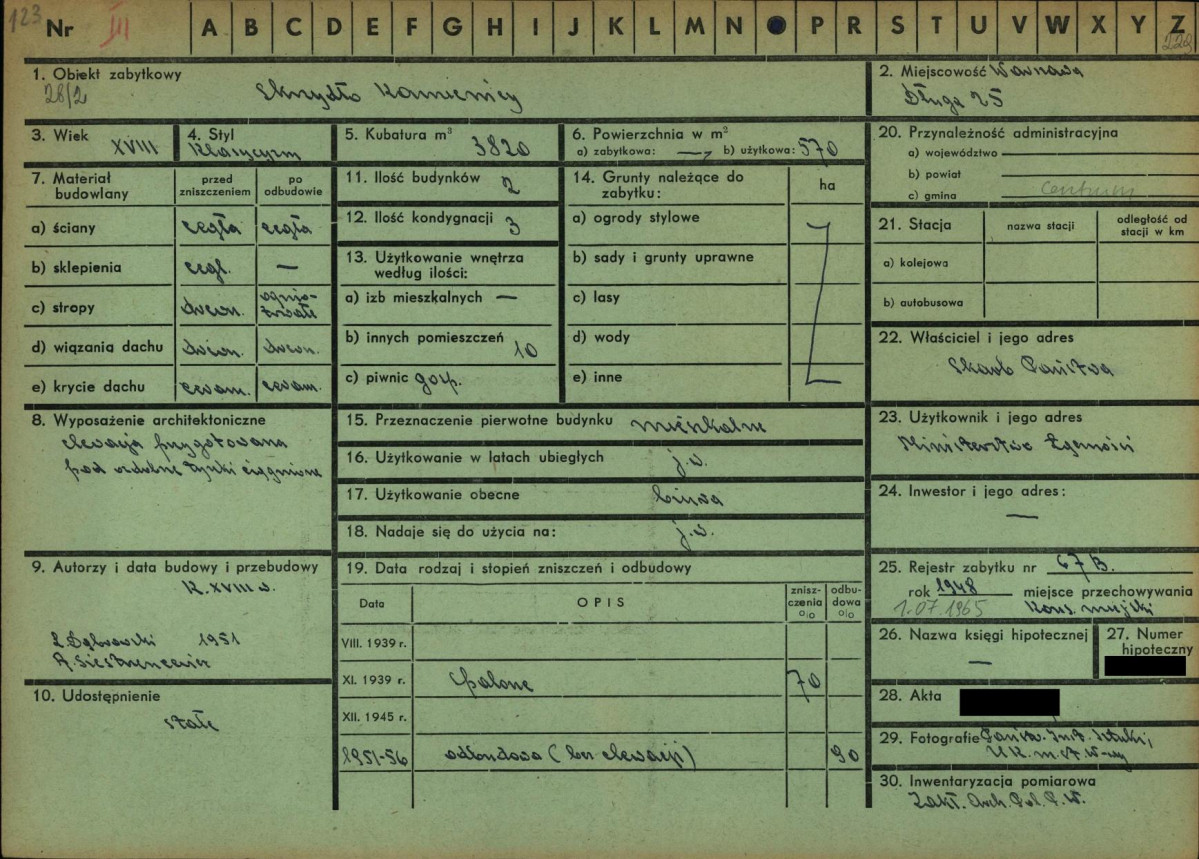 123
Nr III A B C D E F G H I J K L M N P R S T U V W X Y Z
222
1. Obiekt zabytkowy
28/2
Skrzydło Kamienicy
2. Miejscowość Warszawa
Długa 25
3. Wiek XVIII
4. Styl
Klasycyzm
5. Kubatura m³ 3820
6. Powierzchnia w m²
a) zabytkowa: — b) użytkowa: 570
20. Przynależność administracyjna
a) województwo
b) powiat
c) gmina Centrum
7. Materiał budowlany
przed zniszczeniem
po odbudowie
a) ściany cegła cegła
b) sklepienia cegl. —
c) stropy drewn. ognio-
trwałe
d) wiązania dachu drewn. drewn.
e) krycie dachu ceram. ceram.
11. Ilość budynków 2
12. Ilość kondygnacji 3
13. Użytkowanie wnętrza
według ilości:
a) izb mieszkalnych —
b) innych pomieszczeń 10
c) piwnic gosp.
14. Grunty należące do
zabytku:
ha
a) ogrody stylowe
b) sady i grunty uprawne
c) lasy
d) wody
e) inne
21. Stacja
nazwa stacji
odległość od
stacji w km
a) kolejowa
b) autobusowa
22. Właściciel i jego adres
Skarb Państwa
8. Wyposażenie architektoniczne
elewacja przygotowana
pod ozdobne tynki ciągnione
15. Przeznaczenie pierwotne budynku mieszkalne
16. Użytkowanie w latach ubiegłych j.w.
17. Użytkowanie obecne biura
18. Nadaje się do użycia na: j.w.
23. Użytkownik i jego adres
Ministerstwo Łączności
24. Inwestor i jego adres:
—
9. Autorzy i data budowy i przebudowy
K. XVIII w.
1951
10. Udostępnienie
stałe
19. Data rodzaj i stopień zniszczeń i odbudowy
Data
OPIS
znisz-
czenia
%
odbu-
dowa
%
VIII. 1939 r.
XI. 1939 r. spalone 70
XII. 1945 r.
1951-56 odbudowa (bez elewacji) 90
25. Rejestr zabytku nr 67 B.
rok 1948 miejsce przechowywania
1.07.1965 Kons. miejski
26. Nazwa księgi hipotecznej
—
27. Numer
hipoteczny
28. Akta
29. Fotografie Państw. Inst. Sztuki,
U.K. m. st. W-wy
30. Inwentaryzacja pomiarowa
Zakł. Arch. Pol. P.W.